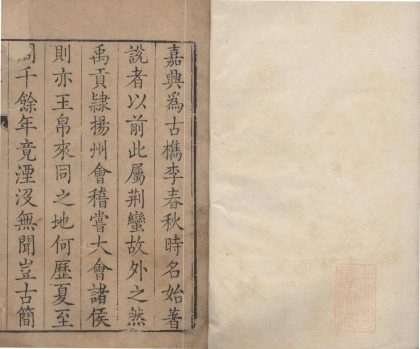 嘉興爲古檇李春秋時名始著
說者以前此屬荆蠻故外之然
禹貢隷揚州會稽嘗大會諸侯
則亦玉帛來同之地何歷夏至
周千餘年竟湮沒無聞豈古簡